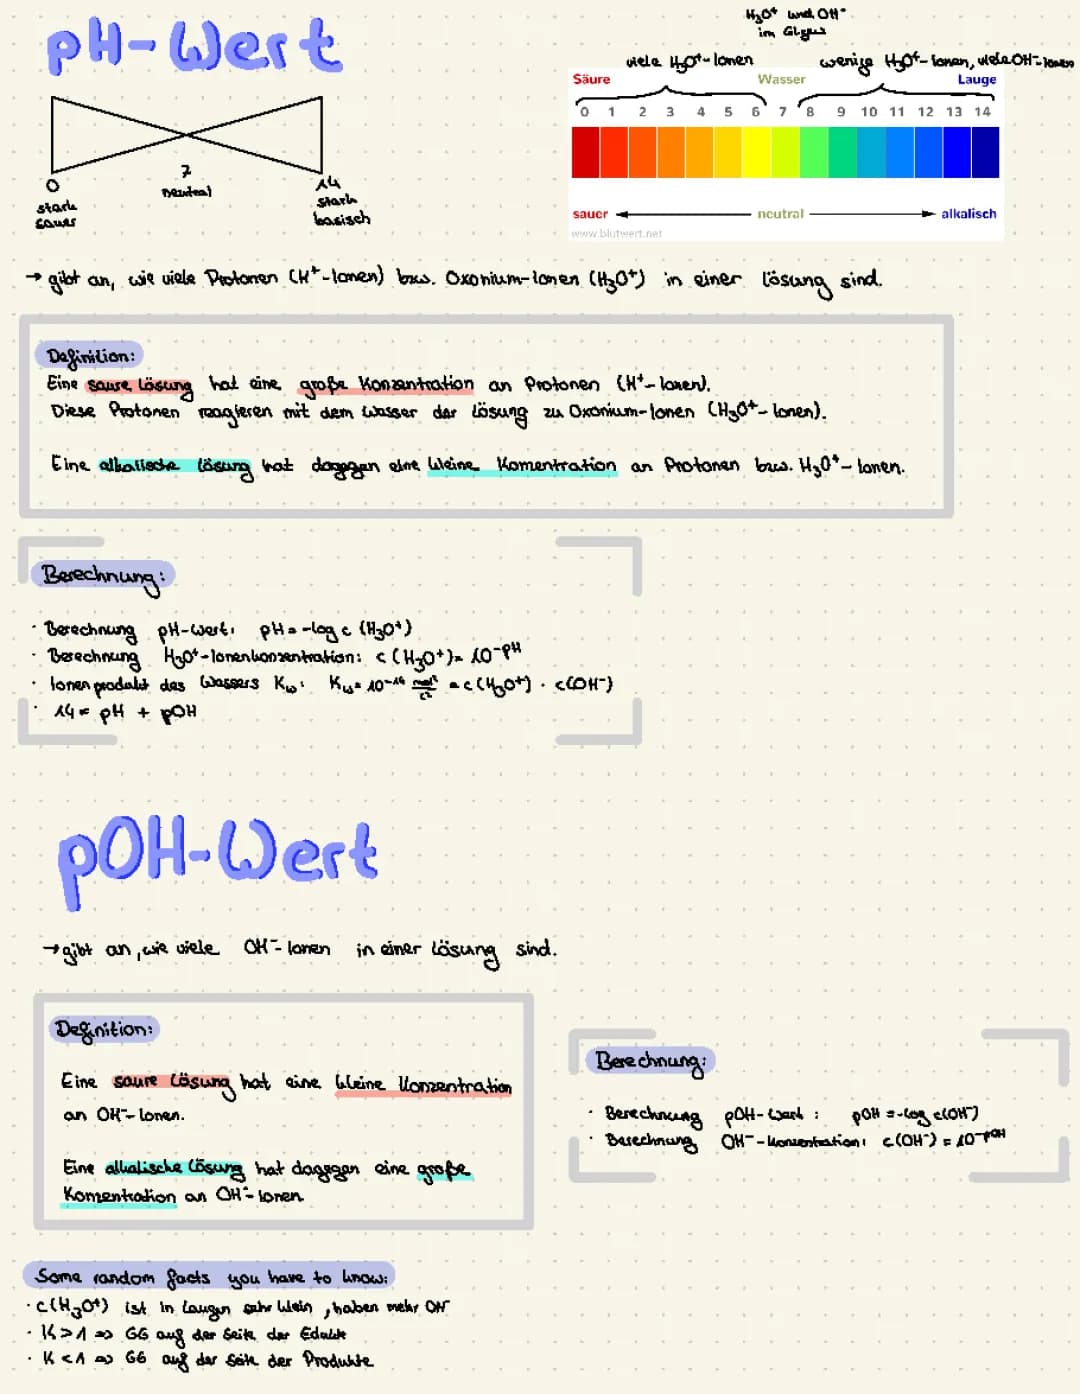 pH-Wert
H₃O⁺ und OH⁻
im Glgw
viele H₃O⁺-Ionen
wenige H₃O⁺-Ionen, viele OH⁻-Ionen
Säure Wasser Lauge
0 1 2 3 4 5 6 7 8 9 10 11 12 13 14
sauer neutral alkalisch
www.blutwert.net
0
stark
sauer
7
neutral
14
stark
basisch
→ gibt an, wie viele Protonen (H⁺-Ionen) bzw. Oxonium-Ionen (H₃O⁺) in einer Lösung sind.
Definition:
Eine saure Lösung hat eine große Konzentration an Protonen (H⁺-Ionen).
Diese Protonen reagieren mit dem Wasser der Lösung zu Oxonium-Ionen (H₃O⁺-Ionen).
Eine alkalische Lösung hat dagegen eine kleine Konzentration an Protonen bzw. H₃O⁺-Ionen.
Berechnung:
· Berechnung pH-Wert: pH = -log c (H₃O⁺)
· Berechnung H₃O⁺-Ionenkonzentration: c (H₃O⁺) = 10⁻ᵖᴴ
· Ionenprodukt des Wassers Kw: Kw = 10⁻¹⁴ mol²/L² = c (H₃O⁺) · c(OH⁻)
· 14 = pH + pOH
pOH-Wert
→ gibt an, wie viele OH⁻-Ionen in einer Lösung sind.
Definition:
Eine saure Lösung hat eine kleine Konzentration
an OH⁻-Ionen.
Eine alkalische Lösung hat dagegen eine große
Konzentration an OH⁻-Ionen
Berechnung:
· Berechnung pOH-Wert: pOH = -log c(OH⁻)
· Berechnung OH⁻-Konzentration: c(OH⁻) = 10⁻ᵖᴼᴴ
Some random facts you have to know:
· c(H₃O⁺) ist in Laugen sehr klein, haben mehr OH⁻
· K > 1 => GG auf der Seite der Edukte
· K < 1 => GG auf der Seite der Produkte